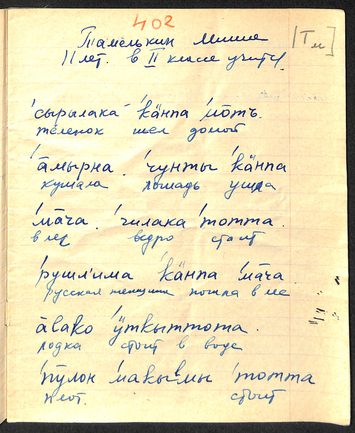 402
Тамелькин Мише [Тм]
11 лет. в II класе учится
'сырылака 'кӓнпа 'мо̄тъ.
теленок шел домой
'а̄мырна. 'чунты 'кӓнпа
кушала лошадь ушла
'ма̄ча. 'чилака 'тотта.
в лес ведро стоит
'рушл'има 'кӓнпа 'ма̄ча.
русская женщина пошла в лес
а̄вако ӱткыттота.
лодка стоит в воде
'пӱлон 'макы 'тотта
стоит